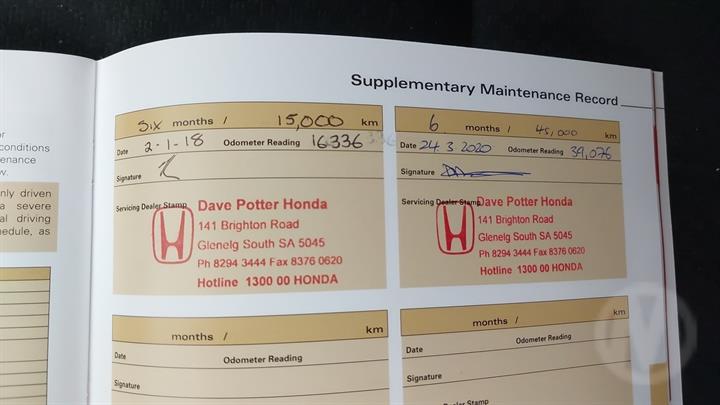 Supplementary Maintenance Record
or
conditions
enance
w.
nly driven
a severe
al driving
edule, as
Six months / 15,000 km
Date 2-1-18 Odometer Reading 16336
Signature
Servicing Dealer Stamp
Dave Potter Honda
141 Brighton Road
Glenelg South SA 5045
Ph 8294 3444 Fax 8376 0620
Hotline 1300 00 HONDA
6 months / 45,000 km
Date 24 3 2020 Odometer Reading 39,076
Signature
Servicing Dealer Stamp
Dave Potter Honda
141 Brighton Road
Glenelg South SA 5045
Ph 8294 3444 Fax 8376 0620
Hotline 1300 00 HONDA
months / km
Date Odometer Reading
Signature
months / km
Date Odometer Reading
Signature
Dealer Stamp